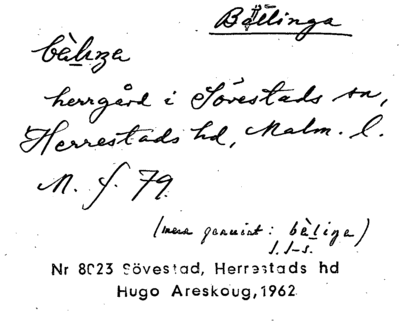 Bällinga
bèḻıŋa
herrgård i Sövestads sn,
Herrestads hd, Malm. l.
M. f. 79.
(mera genuint: bèḻiga)
Nr 8023 Sövestad, Herrestads hd
Hugo Areskoug, 1962